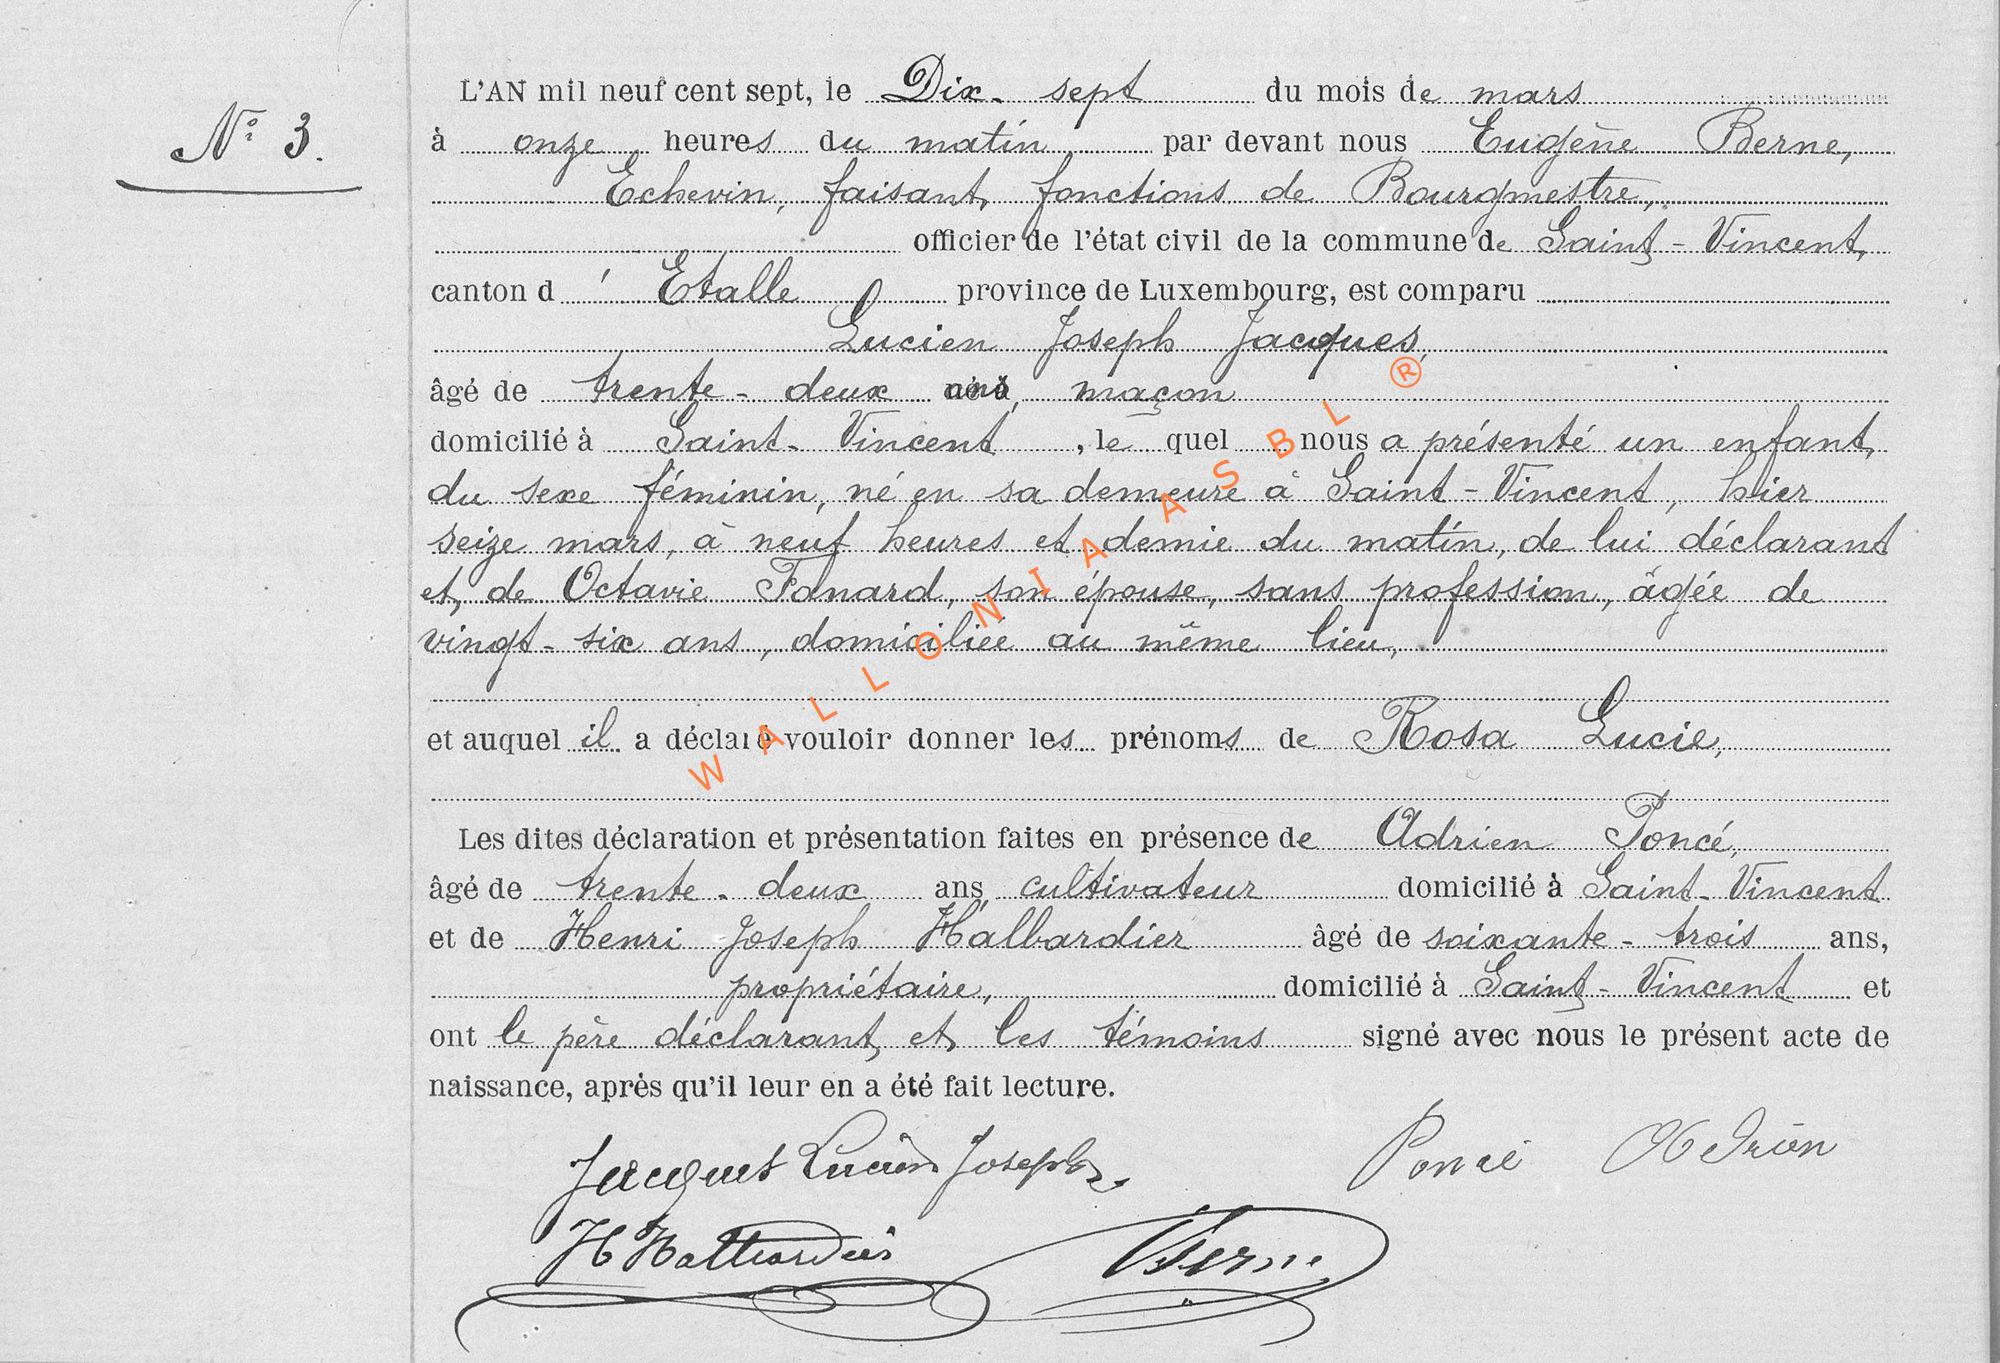 N° 3.
L'AN mil neuf cent sept, le Dix-sept du mois de mars
à onze heures du matin par devant nous Eugène Berne,
Echevin, faisant fonctions de Bourgmestre,
officier de l'état civil de la commune de Saint-Vincent,
canton d'Etalle province de Luxembourg, est comparu
Lucien Joseph Jacques,
âgé de trente-deux ans, maçon
domicilié à Saint-Vincent, lequel nous a présenté un enfant
du sexe féminin, né en sa demeure à Saint-Vincent, hier
seize mars, à neuf heures et demie du matin, de lui déclarant
et de Octavie Fanard, son épouse, sans profession, âgée de
vingt-six ans, domiciliée au même lieu,
et auquel il a déclaré vouloir donner les prénoms de Rosa Lucie,
Les dites déclaration et présentation faites en présence de Adrien Poncé,
âgé de trente-deux ans, cultivateur domicilié à Saint-Vincent
et de Henri Joseph Halbardier âgé de soixante-trois ans,
propriétaire, domicilié à Saint-Vincent et
ont le père déclarant et les témoins signé avec nous le présent acte de
naissance, après qu'il leur en a été fait lecture.
Jacques Lucien Joseph. Poncé Adrien
H Halbardier Berne
WALLONIA ASBL ®